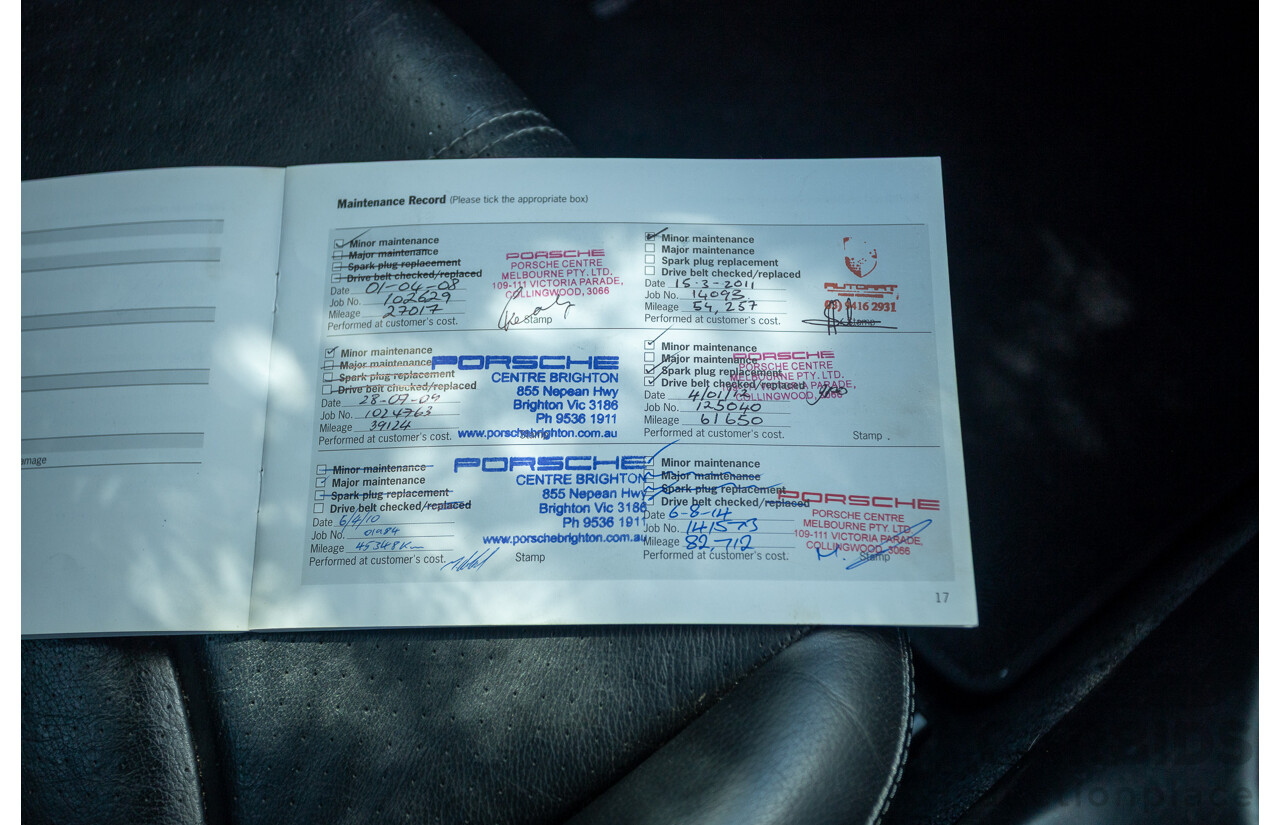 Maintenance Record (Please tick the appropriate box)
Minor maintenance
Major maintenance
Spark plug replacement
Drive belt checked/replaced
Date 01-04-08
Job No. 102629
Mileage 27017
Performed at customer's cost.
Stamp
PORSCHE
PORSCHE CENTRE
MELBOURNE PTY. LTD.
109-111 VICTORIA PARADE,
COLLINGWOOD, 3066
Minor maintenance
Major maintenance
Spark plug replacement
Drive belt checked/replaced
Date 15·3-2011
Job No. 14093
Mileage 54,257
Performed at customer's cost.
AUTOHAUS
9416 2931
Minor maintenance
Major maintenance
Spark plug replacement
Drive belt checked/replaced
Date 28-07-09
Job No. 1024763
Mileage 39124
Performed at customer's cost.
PORSCHE
CENTRE BRIGHTON
855 Nepean Hwy
Brighton Vic 3186
Ph 9536 1911
www.porschebrighton.com.au
Minor maintenance
Major maintenance
Spark plug replacement
Drive belt checked/replaced
Date 4/01/12
Job No. 125040
Mileage 61650
Performed at customer's cost.
Stamp
PORSCHE
PORSCHE CENTRE
MELBOURNE PTY. LTD.
VICTORIA PARADE,
COLLINGWOOD, 3066
Minor maintenance
Major maintenance
Spark plug replacement
Drive belt checked/replaced
Date 6/4/10
Job No. 01984
Mileage 45348Km
Performed at customer's cost.
Stamp
PORSCHE
CENTRE BRIGHTON
855 Nepean Hwy
Brighton Vic 3186
Ph 9536 1911
www.porschebrighton.com.au
Minor maintenance
Major maintenance
Spark plug replacement
Drive belt checked/replaced
Date 6-8-14
Job No. 141573
Mileage 82,712
Performed at customer's cost.
Stamp
PORSCHE
PORSCHE CENTRE
MELBOURNE PTY. LTD.
109-111 VICTORIA PARADE,
COLLINGWOOD, 3066
17